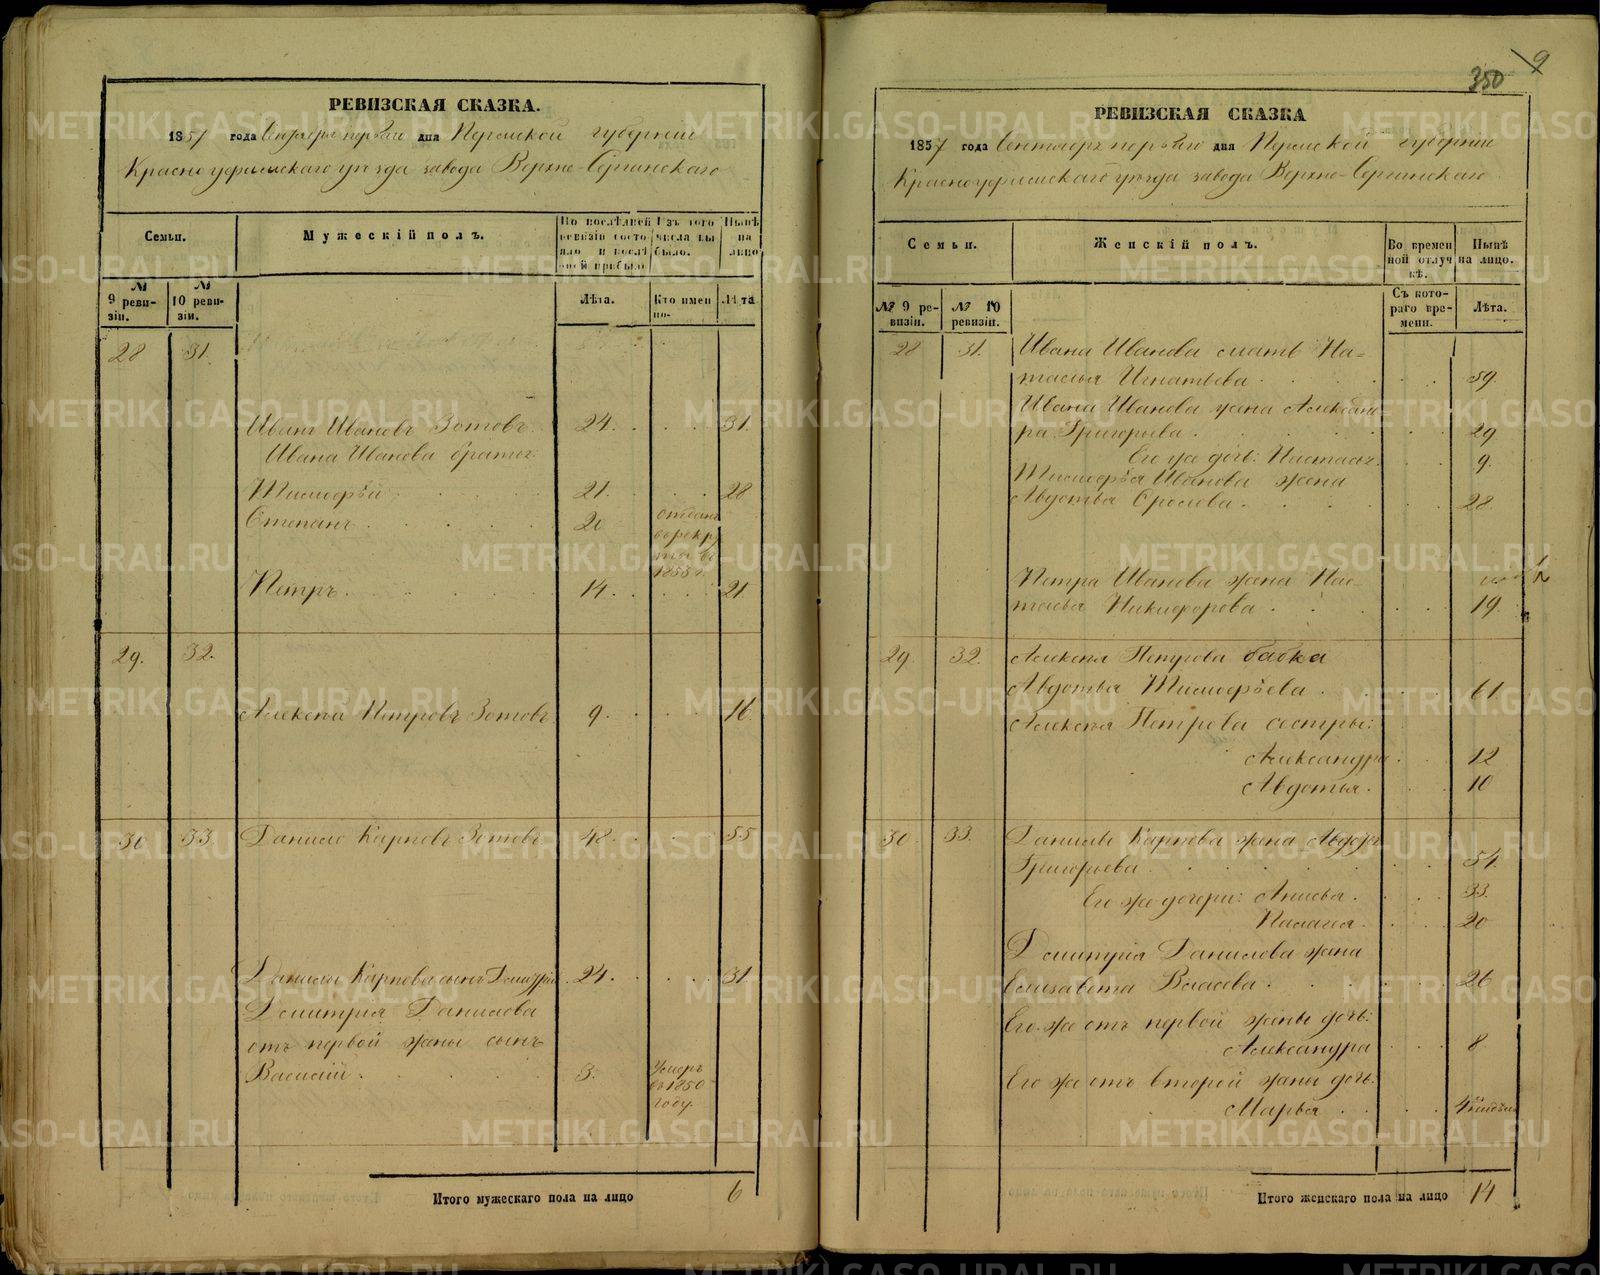 РЕВИЗСКАЯ СКАЗКА.
1857 года Сентября первого дня Пермской губернiи
Красноуфимскаго уѣзда завода Верхне-Сергинскаго
Семьи.
Мужескiй полъ.
По послѣдней ревизiи состояло и послѣ оной прибыло
Изъ того числа выбыло.
Нынѣ на лицо
№ 9 ревизiи.
№ 10 ревизiи.
Лѣта.
Кто именно.
Лѣта
28 31.
Иванъ Ивановъ Зотовъ 24. 31.
Ивана Иванова братья:
Тимофѣй 21. 28
Степанъ 20 отданъ в рекруты въ 1855 г.
Петръ. 14. 21.
29. 32.
Алексѣй Петровъ Зотовъ 9. 16.
30 33. Данило Карповъ Зотовъ 48. 55
Данилы Карпова сынъ Дмитрiй 24. 31.
Дмитрiя Данилова
отъ первой жены сынъ
Василiй 3. Умеръ въ 1850 году.
Итого мужескаго пола на лицо 6
350 9
РЕВИЗСКАЯ СКАЗКА
1857 года Сентября первого дня Пермской губернiи
Красноуфимскаго уѣзда завода Верхне-Сергинскаго.
Семьи.
Женскiй полъ.
Во временной отлучкѣ.
Нынѣ на лицо.
№ 9 ревизiи.
№ 10 ревизiи.
Съ котораго времени.
Лѣта.
28 31. Ивана Иванова мать На-
талья Игнатьева 59.
Ивана Иванова жена Александ
ра Григорьева. 29
Его же дочь: Настасья. 9.
Тимофѣя Иванова жена
Авдотья Фролова. 28
Петра Иванова жена Нас-
тасья Никифорова 19.
29 32. Алексѣя Петрова бабка
Авдотья Тимофѣева 61.
Алексѣя Петрова сестры:
Александра 12
Авдотья. 10
30. 33. Данилы Карпова жена Авдот
Григорьева 54.
Его же дочери: Анисья. 33.
Палагея. 20
Дмитрiя Данилова жена
Елизавета Власова 26
Его же отъ первой жены дочь:
Александра 8
Его же отъ второй жены дочь:
Марья 4 недѣли
Итого женскаго пола на лицо 14
METRIKI.GASO-URAL.RU